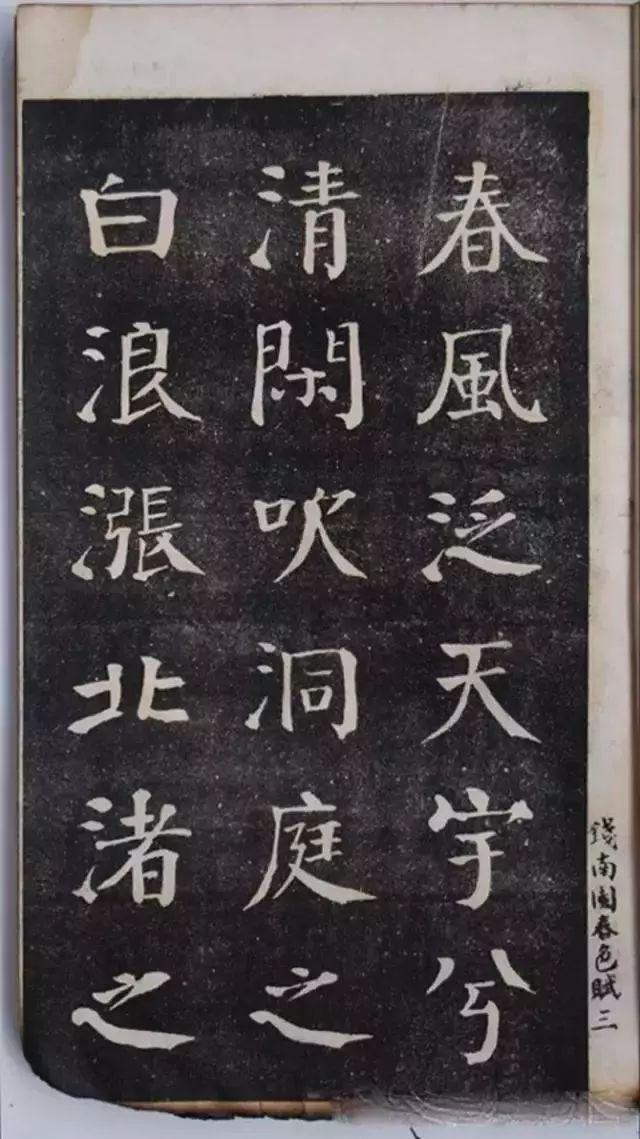 春風泛天宇兮
清閑吹洞庭之
白浪漲北渚之
錢南園春色賦 三